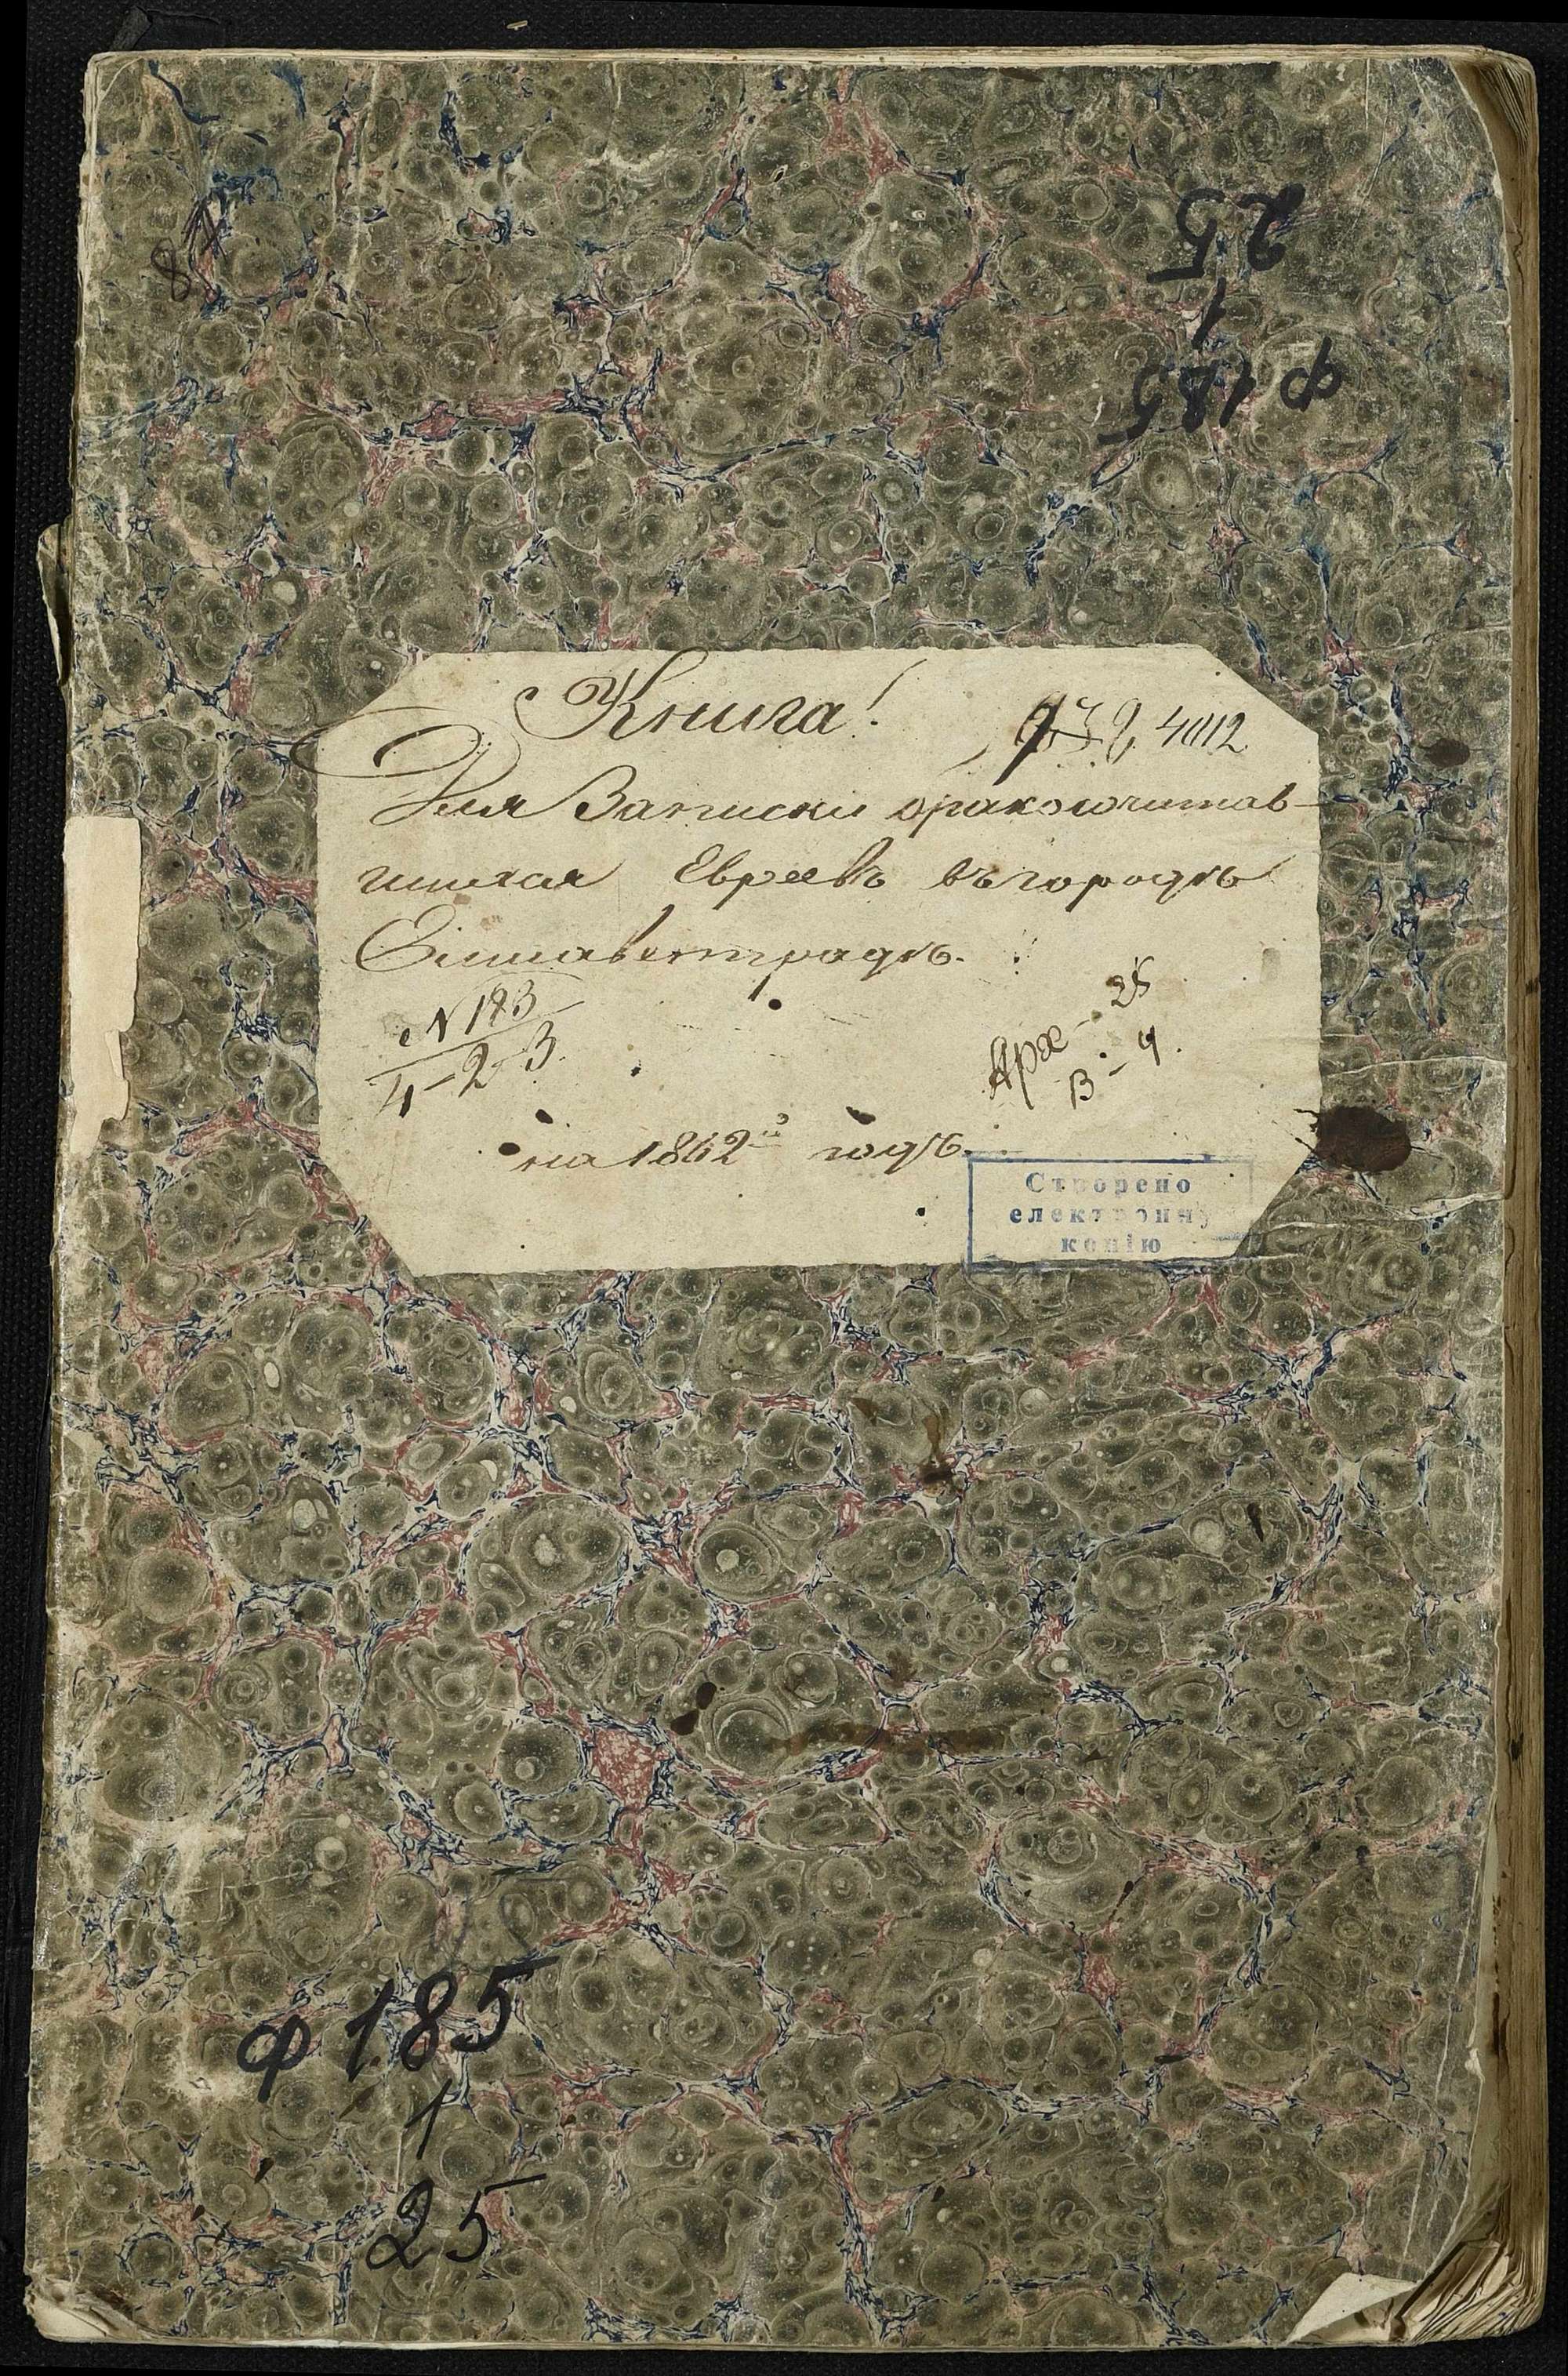 25
1
ф 185
Книга!
4012
Для Записки бракосочитав-
шихся Евреевъ въ городѣ
Елисаветградѣ.
N 183
4-2-3.
Арх - 25
В - 4.
на 1862й годъ.
Створено
електронну
копію
ф 185
1
25